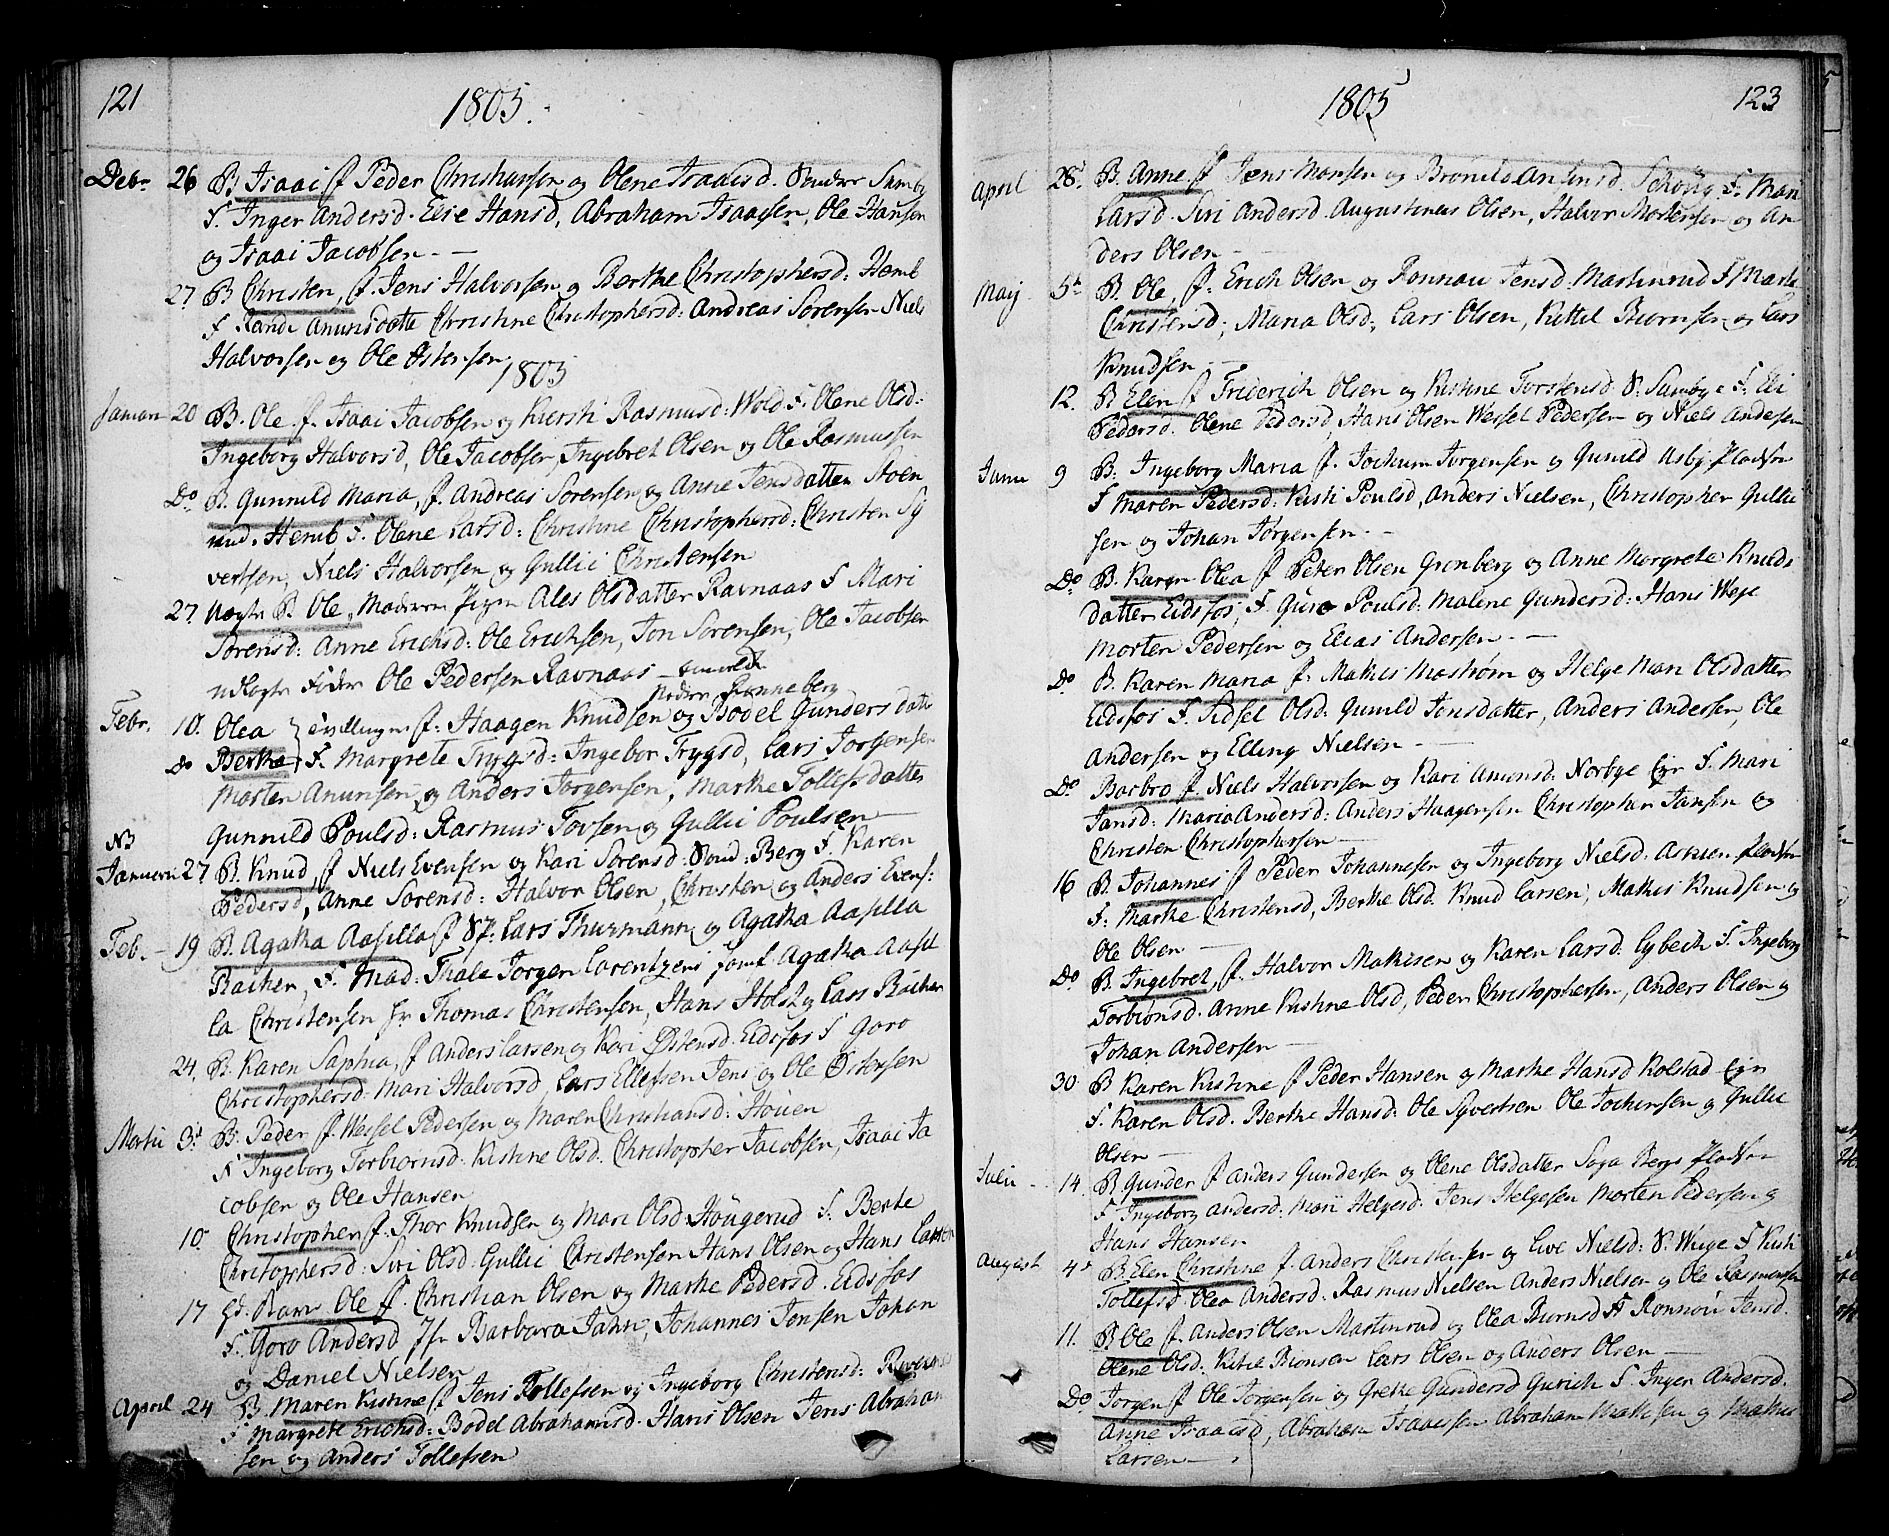 121
1805.
Debr. 26 B. Isaai f Peder Christiansen og Olene Isaacsd. Søndre Sumby
F. Inger Andersd. Elie Hansd, Abraham Isaacsen, Ole Hansen
og Isaai Jacobsen.
27 B Christen, f. Jens Halvorsen og Berthe Christophersd: Hemb
F. Randi Amunsdatte Christine Christophersd: Andreas Sørensen Niels
Halvorsen og Ole Østensen
1805
Januari 20 B. Ole f. Isaai Jacobsen og Kiersti Rasmusd: Wold F. Olene Olsd:
Ingeborg Halvorsd, Ole Jacobsen, Ingebret Olsen og Ole Rasmussen
Do B. Gunnild Maria, f. Andreas Sørensen og Anne Jensdatter Hoen
Hemb F. Olene Larsd: Christine Christophersd: Christen Sy
vertsen, Niels Halvorsen og Gullic Christensen
27 Uægte B. Ole, Moderen Pigen Ales Olsdatter Ravnaas F Mari
Sørensd: Anne Erichsd: Ole Erichsen, Jon Sørensen, Ole Jacobsen
udlagte Fader Ole Pedersen Ravnaas
Febr. 10. Olea tvillinger f. Haagen Knudsen og Bodel Gundersdatter Nedre Ranneberg
Do Berthe F. Margrete Trygsd: Ingebor Trygsd, Lars Jorgensen
Morten Amunsen og Anders Jorgensen, Marthe Tollefsdatter
Gunnild Poulsd: Rasmus Tovsen og Gullic Poulsen
NB
Januari 27 B. Knud, f Niels Evensen og Kari Sørensd: Sønd: Berg F. Karen
Pedersd, Anne Sørensd: Halvor Olsen, Christen og Anders Evens:
Feb. 19 B. Agatha Aasilla f Sr. Lars Thurmann og Agatha Aasilla
Backer, F. Mad: Thale Jørgen Lorentzens Jomf. Agatha Aasil
la Christensen Hr Thomas Christensen, Hans Holst og Lars Bächer
24. B. Karen Saphia, f Anders Larsen og Kari Østensd. Eidsfos F Goro
Christophersd: Mari Halvorsd, Lars Ellefsen Jens og Ole Østensen
Martii 3d B. Peder f. Wessel Pedersen og Maren Christiansd: Houen
F Ingeborg Torbiørnsd: Kistine Olsd. Christopher Jacobsen, Isaai Ja
cobsen og Ole Hansen
10. Christopher f. Thor Knudsen og Mari Olsd: Hougerud F. Berthe
Christophersd: Siri Olsd: Gullic Christensen Hans Olsen og Hans Larsen
17 Barn Ole f. Christian Olsen og Marthe Pedersd. Eidsfos
F. Goro Andersd Jfr Barbara Jahn, Johannes Jensen Johan
og Daniel Nielsen
April 24 B. Maren Kistine f Jens Tollefsen og Ingeborg Christensd:
F Margrete Erichsd: Bodel Abrahamsd. Hans Olsen Jens Abraham
sen og Anders Tollefsen
1805
123
April 28. B. Anne f Jens Monsen og Brønild Amunsd. Schoug F. Mari
Larsd. Siri Andersd. Augustinus Olsen, Halvor Mortensen og An
ders Olsen
Maij 5d B. Ole, f. Erich Olsen og Ronnau Jensd. Martinrud F Marte
Christensd, Maria Olsd, Lars Olsen, Kittil Biørnsen og Lars
Knudsen
12. B Elen f Friderich Olsen og Kistine Torstensd S. Sumbye F. Eli
Pedersd. Olene Pedersd, Hans Olsen Wessel Pedersen og Niels Andersen
Junii 9 B. Ingeborg Maria f. Jochum Jørgensen og Gunild Asby Pladsen
F Maren Pedersd: Kisti Poulsd, Anders Nielsen, Christopher Gullic
sen og Johan Jørgensen
Do B. Karen Olea f Peter Olsen Grønberg og Anne Margrete Knuds
datter Eidsfos, F. Guro Poulsd: Malene Gundersd: Hans Weje
Morten Pedersen og Elias Andersen
Do B. Karen Maria f. Mathis Mostrøm og Helge Mari Olsdatter
Eidsfos F. Sidsel Olsd: Gunild Jonsdatter, Anders Andersen, Ole
Andersen og Elling Nielsen
Do Barbro f Niels Halvorsen og Kari Amonsd: Norbye Eyr F. Mari
Jansd: Maria Andersd: Anders Haagensen Christopher Jansen og
Christen Christophersen
16 B. Johannes f Peder Johannesen og Ingeborg Nielsd. Askien Pladsen
F. Marthe Christensd, Berthe Olsd. Knud Larsen, Mathis Knudsen og
Ole Olsen
Do B. Ingebret, f. Halvor Mathisen og Karen Larsd. Lybech F. Ingeborg
Torbionsd. Anne Kistine Olsd, Peder Christophersen, Anders Olsen og
Johan Andersen
30 B Karen Kistine f Peder Hansen og Marthe Hansd Kolstad Eyr
F. Karen Olsd. Berthe Hansd: Ole Syvertsen Ole Jochimsen og Gullic
Olsen
Julii 14 B Gunder f Anders Gundersen og Olene Olsdatter Saga Bergs Pladsen
F Ingeborg Andersd: Mari Helgesd. Jens Helgesen Morten Pedersen og
Hans Hansen
August 4d B Elen Christine f. Anders Christensen og Live Nielsd: S. Weige F Kisti
Tollefsd. Olea Andersd: Rasmus Nielsen Anders Nielsen og Ole Rasmussen
11. B Ole f Anders Olsen Martinrud og Olea Biørnsd F. Ronnou Jensd.
Olene Olsd. Kittil Bionsen Lars Olsen og Anders Olsen
Do Jorgen f Ole Jorgensen og Grethe Gundersd Gurich F Inger Andersd.
Anne Isaacsd, Abraham Isaacsen Abraham Mathisen og Mathis
Larsen